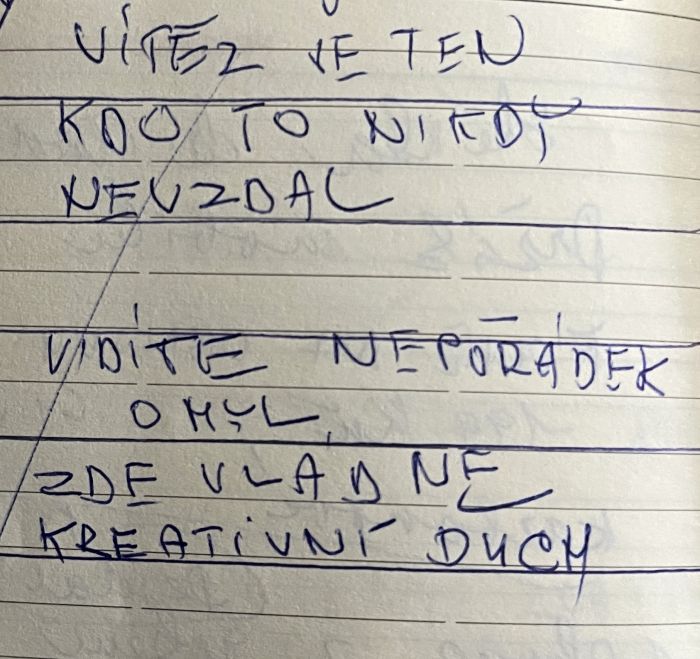 VÍTĚZ JE TEN
KDO TO NIKDY
NEVZDAL
VIDÍTE NEPOŘÁDEK
OMYL,
ZDE VLADNE
KREATIVNÍ DUCH